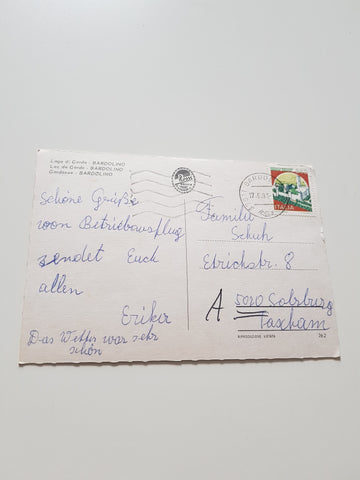 Lago di Garda - BARDOLINO
Lac de Garde - BARDOLINO
Gardasee - BARDOLINO
Schöne Grüße
vom Betriebsausflug
sendet Euch
allen
Erika
Das Wetter war sehr
schön
ITALIA
Familie
Schuh
Etrichstr. 8
A 5020 Salzburg
Taxham
RIPRODUZIONE VIETATA